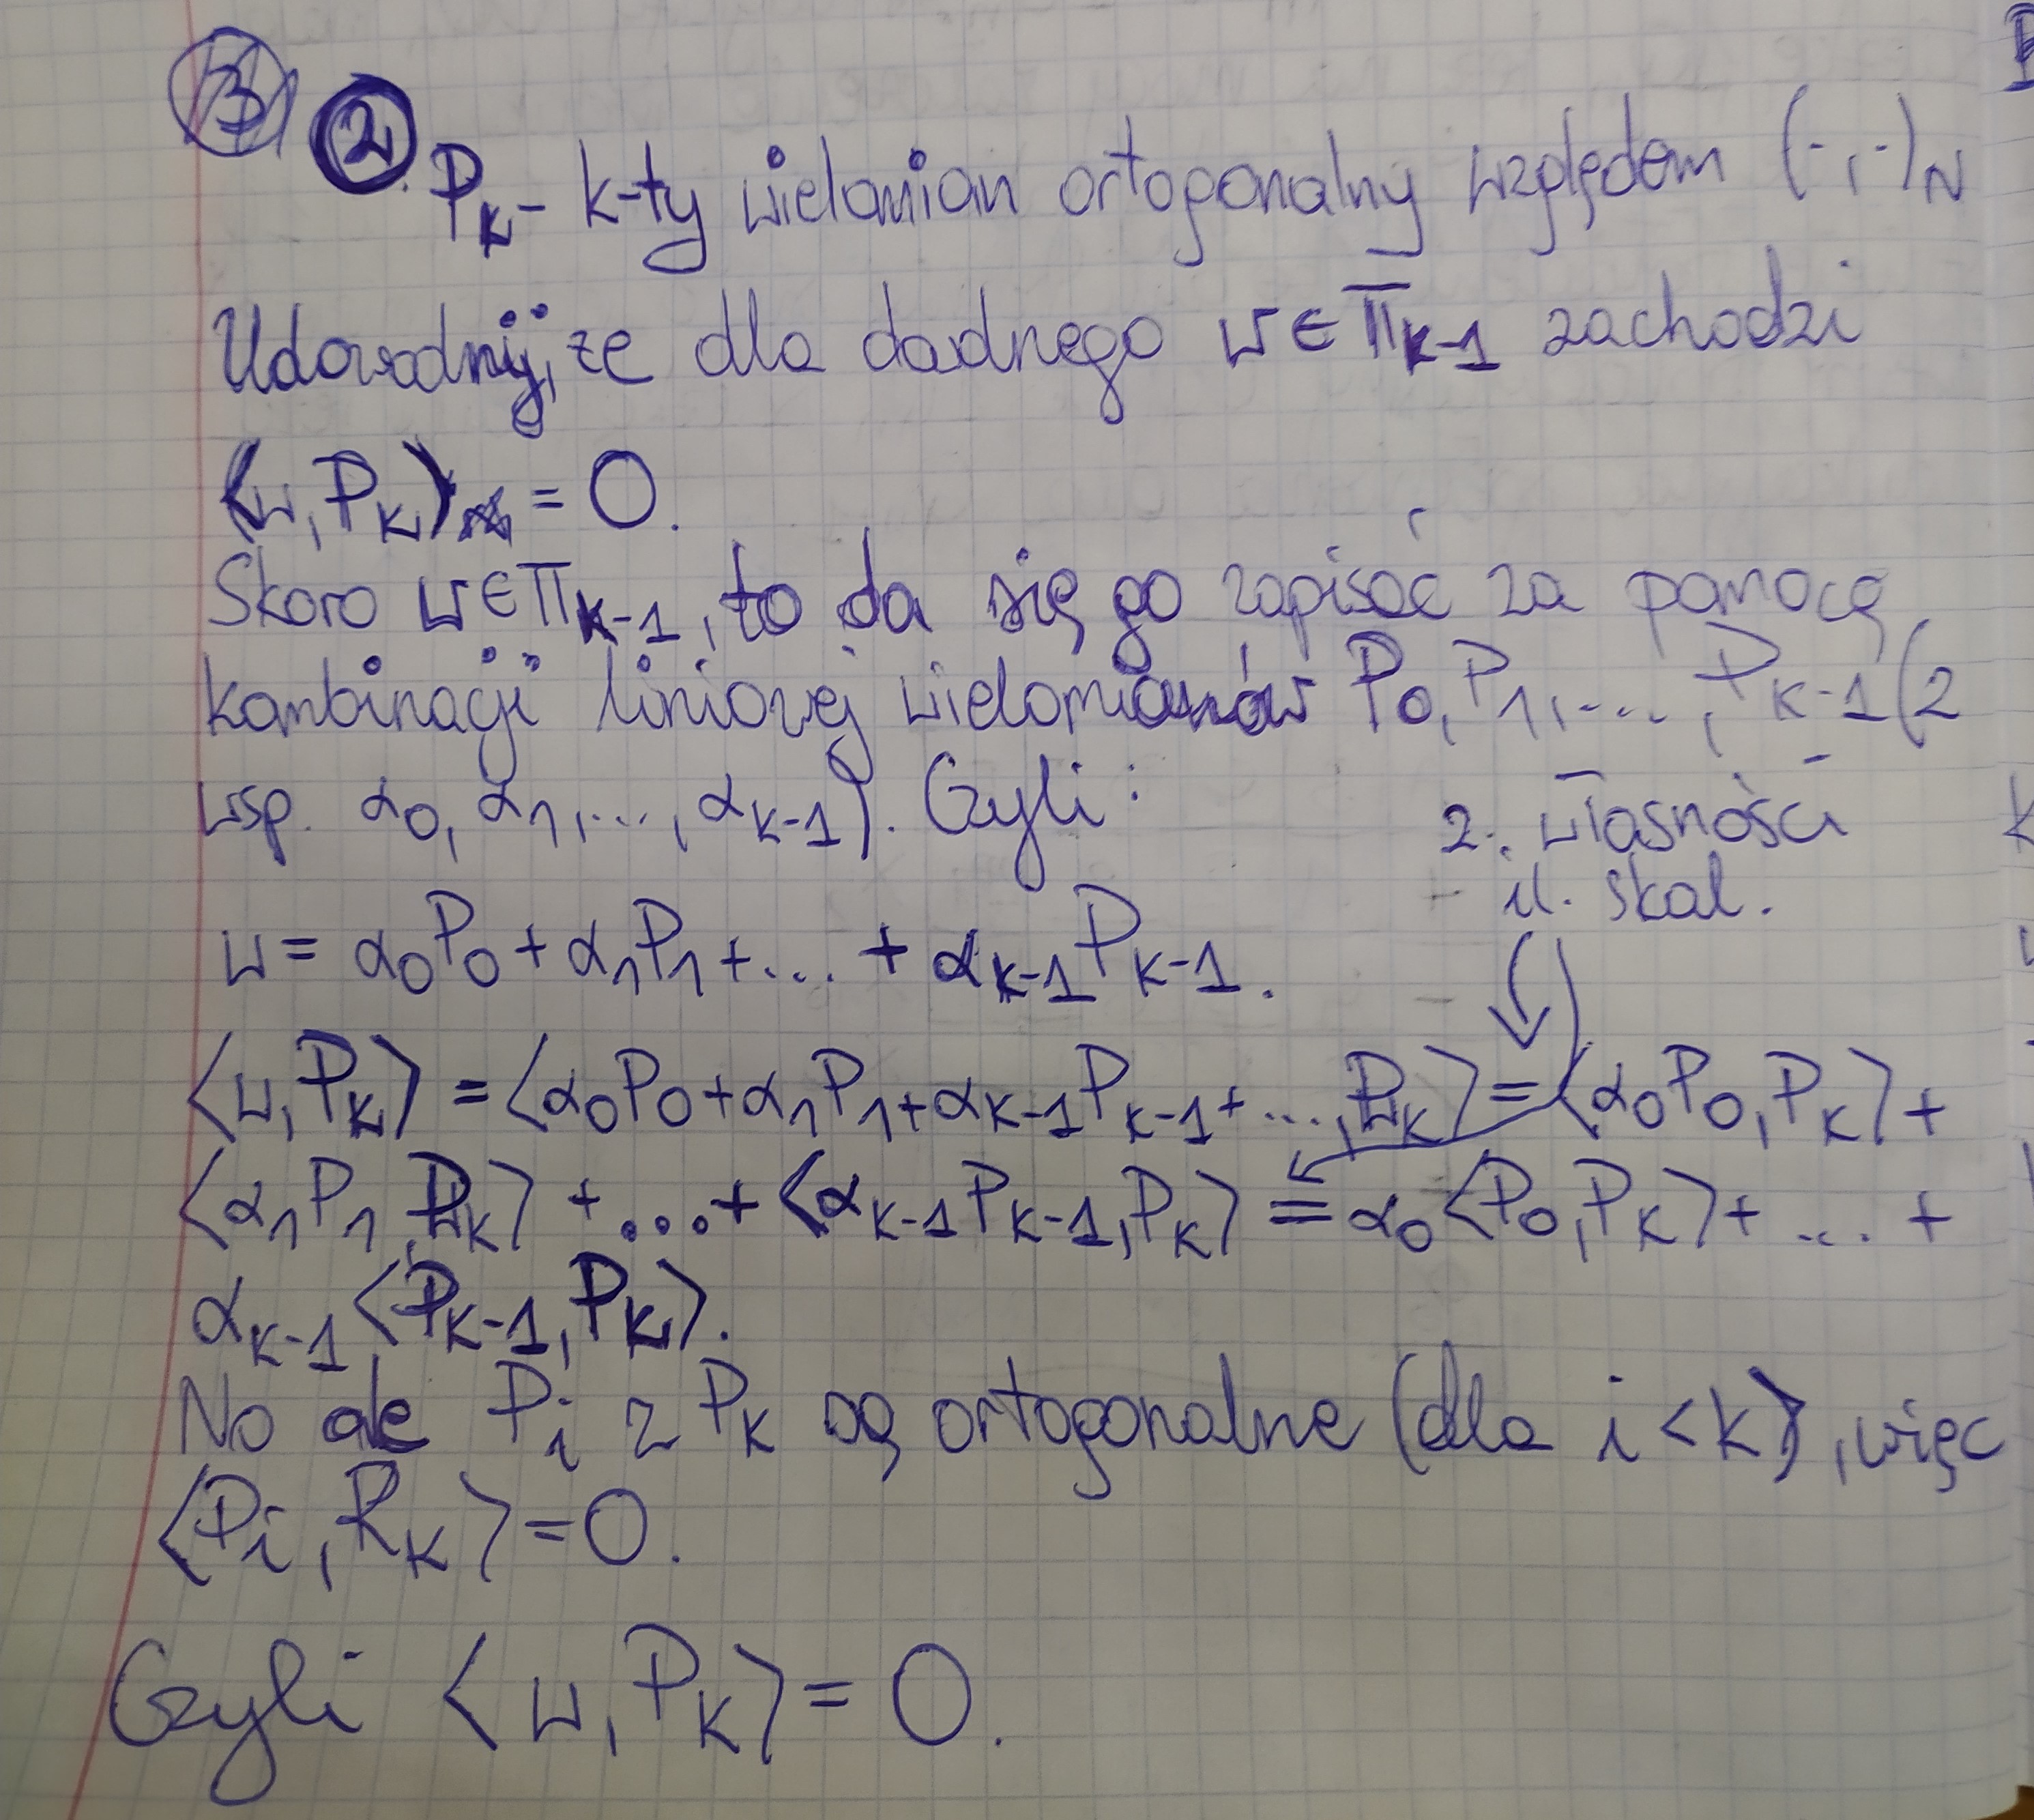 ②. Pₖ - k-ty wielomian ortogonalny względem (·,·)_N
Udowodnij, że dla dadnego w ∈ Πₖ₋₁ zachodzi
⟨w, Pₖ⟩ = 0.
Skoro w ∈ Πₖ₋₁, to da się go zapisać za pomocą
kombinacji liniowej wielomianów P₀, P₁, ..., Pₖ₋₁ (z
wsp. α₀, α₁, ..., αₖ₋₁). Czyli:
z. własności
il. skal.
w = α₀P₀ + α₁P₁ + ... + αₖ₋₁Pₖ₋₁.
⟨w, Pₖ⟩ = ⟨α₀P₀ + α₁P₁ + αₖ₋₁Pₖ₋₁ + ..., Pₖ⟩ = ⟨α₀P₀, Pₖ⟩ +
⟨α₁P₁, Pₖ⟩ + ... + ⟨αₖ₋₁Pₖ₋₁, Pₖ⟩ = α₀⟨P₀, Pₖ⟩ + ... +
αₖ₋₁⟨Pₖ₋₁, Pₖ⟩.
No ale Pᵢ z Pₖ są ortogonalne (dla i < k), więc
⟨Pᵢ, Pₖ⟩ = 0.
Czyli ⟨w, Pₖ⟩ = 0.